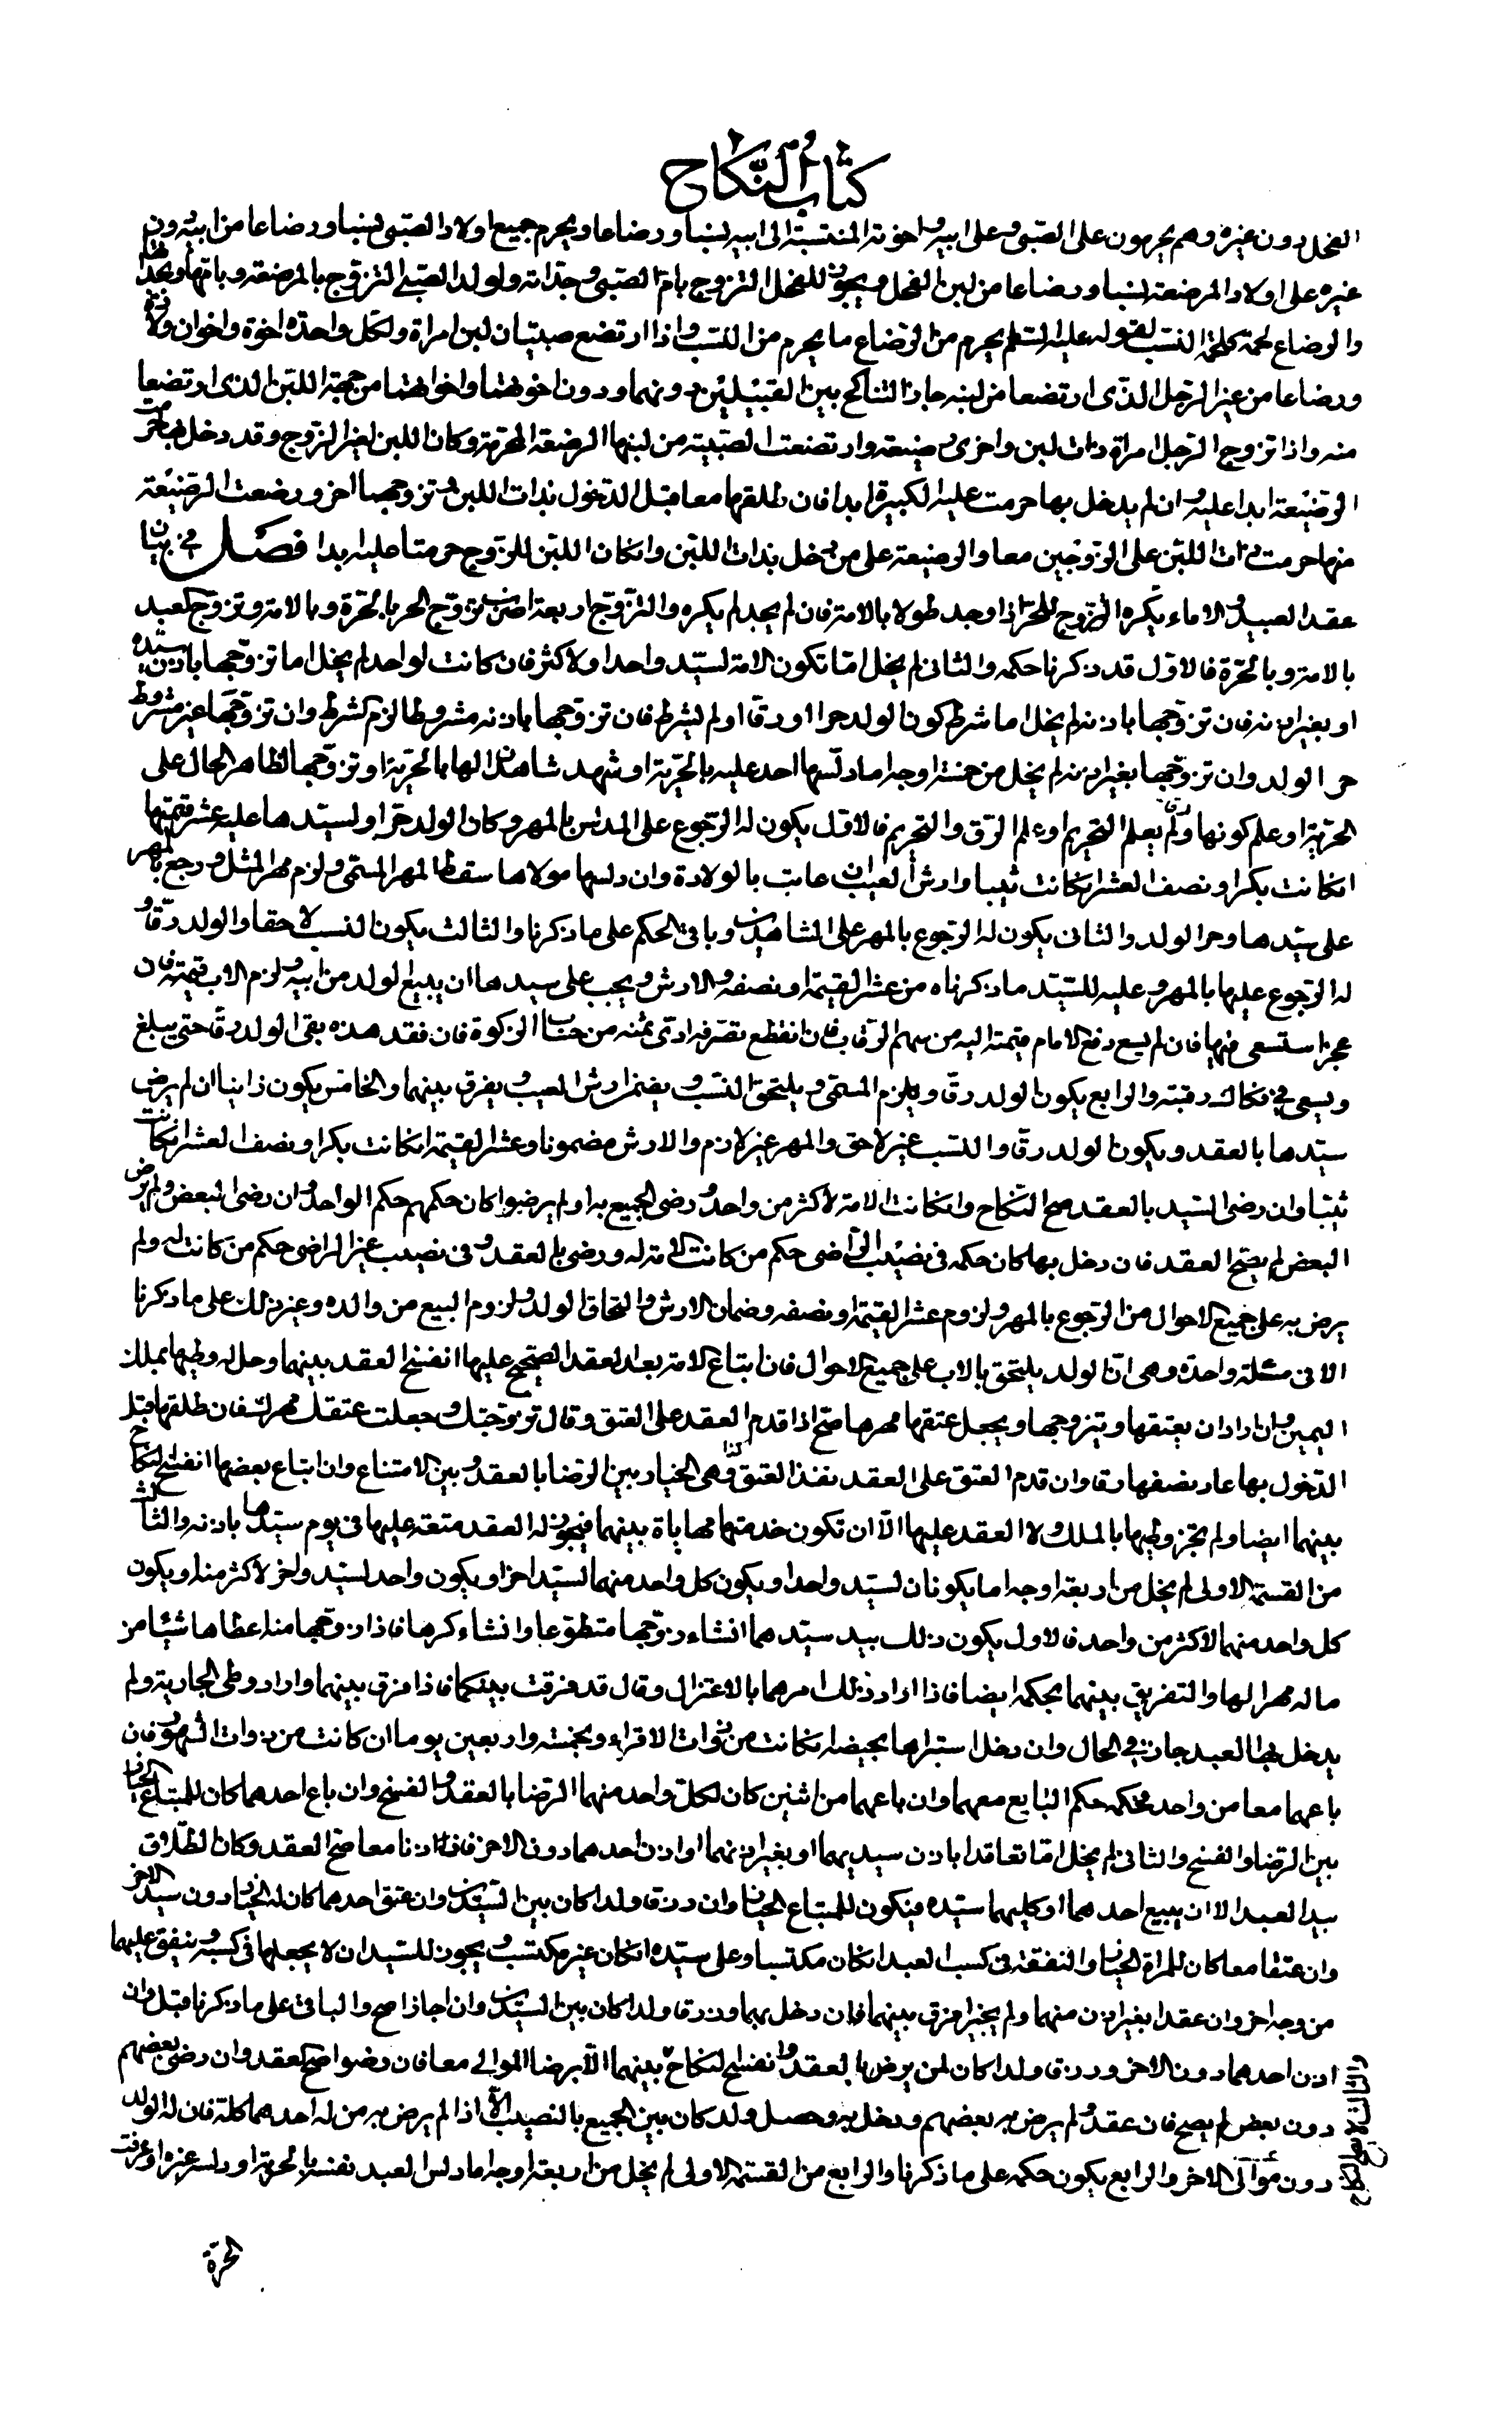 كتاب النكاح
الفحل دون غيره وهم يحرمون على الصبى وعلى ابيه واخوته المنتسبة الى ابيه نسبا ورضاعا ويحرم جميع اولاد الصبى نسبا ورضاعا من ابيه دون
غيره على اولاد المرضعة نسبا ورضاعا من لبن الفحل ويجوز للفحل التزوج بام الصبى وجداته ولولد الصبى التزوج بالمرضعة وبامهاتها وبجداتها
والرضاع لحمة كلحمة النسب لقوله عليه السلم يحرم من الرضاع ما يحرم من النسب واذا ارتضع صبيتان لبن امراة ولكل واحدة اخوة واخوان ولادة
ورضاعا من غير الرجل الذى ارتضعا من لبنه جاز التناكح بين القبيلين دونهما ودون اخوتهما واخواتهما من جهة اللبن الذى ارتضعا
منه واذا تزوج الرجل امراة ذات لبن واخرى رضيعة وارتضعت الصبية من لبنها الرضعة المحرمة وكان اللبن لغير الزوج وقد دخل بها حرمت
الرضيعة ابدا عليه وان لم يدخل بها حرمت عليه الكبيرة ابدا فان طلقها معا قبل الدخول بذات اللبن وتزوجهما اخر ورضعت الرضيعة
منها حرمت ذات اللبن على الزوجين معا والرضيعة على من دخل بذات اللبن وان كان اللبن للزوج حرمتا عليه ابدا فصل فى بيان
عقد العبيد والاماء يكره التزوج للحر اذا وجد طولا بالامة فان لم يجد لم يكره والتزوج اربعة اضرب تزوج الحر بالحرة وبالامة وتزوج العبد
بالامة وبالحرة فالاول قد ذكرنا حكمه والثانى لم يخل اما تكون الامة لسيد واحد او لاكثر فان كانت لواحد لم يخل اما تزوجها باذن سيده
او بغير اذنه فان تزوجها باذنه لم يخل اما شرط كون الولد حرا او رقا او لم يشرط فان تزوجها باذنه مشروطا لزم الشرط وان تزوجها غير مشروط
حر الولد وان تزوجها بغير اذنه لم يخل من خمسة اوجه اما دلسها احد عليه بالحرية او شهد شاهدان لها بالحرية او تزوجها لظاهر الحال على
الحرية او علم كونها رقا ولم يعلم التحريم او علم الرق والتحريم فالاول يكون له الرجوع على المدلس بالمهر وكان الولد حرا ولسيدها عليه عشر قيمتها
ان كانت بكرا ونصف العشر ان كانت ثيبا وارش العيب ان عابت بالولادة وان دلسها مولاها سقط المهر المسمى ولزم مهر المثل ورجع بالمهر
على سيدها وحر الولد والثانى يكون له الرجوع بالمهر على الشاهدين وباقى الحكم على ما ذكرنا والثالث يكون النسب لاحقا والولد رقا و
له الرجوع عليها بالمهر وعليه للسيد ما ذكرناه من عشر القيمة او نصفه والارش ويجب على سيدها ان يبيع الولد من ابيه ولزم الاب قيمته فان
عجز استسعى فيها فان لم يسع دفع الامام قيمته اليه من سهم الرقاب فان انقطع تصرفه ادى ثمنه من حساب الزكوة فان فقد هذه بقى الولد رقا حتى يبلغ
ويسعى فى فكاك رقبته والرابع يكون الولد رقا ويلزم المسمى ويلتحق النسب ويضمن ارش العيب ويفرق بينهما والخامس يكون زانيا ان لم يرض
سيدها بالعقد ويكون الولد رقا والنسب غير لاحق والمهر غير لازم والارش مضمونا وعشر القيمة ان كانت بكرا ونصف العشر ان كانت
ثيبا وان رضى السيد بالعقد صح النكاح وان كانت الامة لاكثر من واحد ورضى الجميع به او لم يرضوا كان حكمهم حكم الواحد وان رضى البعض ولم يرض
البعض لم يصح العقد فان دخل بها كان حكمه فى نصيب الراضى حكم من كانت الامة له ورضى بالعقد وفى نصيب غير الراضى حكم من كانت له ولم
يرض به على جميع الاحوال من الرجوع بالمهر ولزوم عشر القيمة او نصفه وضمان الارش والتحاق الولد ولزوم البيع من والده وغير ذلك على ما ذكرنا
الا فى مسئلة واحدة وهى ان الولد يلتحق بالاب على جميع الاحوال فان ابتاع الامة بعد العقد الصحيح عليها انفسخ العقد بينهما وحل له وطيها بملك
اليمين وان اراد ان يعتقها ويتزوجها ويجعل عتقها مهرها صح اذا قدم العقد على العتق وقال تزوجتك وجعلت عتقك مهرك فان طلقها قبل
الدخول بها عاد نصفها رقا وان قدم العتق على العقد نفذ العتق وهى الخيار بين الرضا بالعقد وبين الامتناع وان ابتاع بعضها انفسخ النكاح
بينهما ايضا ولم يجز وطيها بالملك ولا العقد عليها الا ان تكون خدمتها مهاياة بينهما فيجوز له العقد متعة عليها فى يوم سيدها باذنه والثالث
من القسمة الاولى لم يخل من اربعة اوجه اما يكونان لسيد واحد او يكون كل واحد منهما لسيد اخر او يكون واحد لسيد واخر لاكثر منه او يكون
كل واحد منهما لاكثر من واحد فالاول يكون ذلك بيد سيدهما ان شاء زوجها متطوعا وان شاء كرها فاذا زوجها منه اعطاها شيئا من
ماله مهرا لها والتفريق بينهما بحكمه ايضا فاذا اراد ذلك امرهما بالاعتزال وقال قد فرقت بينكما فاذا فرق بينهما واراد وطى الجارية ولم
يدخل بها العبد جاز فى الحال وان دخل استبراها بحيضة ان كانت من ذوات الاقراء وبخمسة واربعين يوما ان كانت من ذوات الشهور فان
باعهما معا من واحد فحكمه حكم البايع معهما وان باعهما من اثنين كان لكل واحد منهما الرضا بالعقد والفسخ وان باع احدهما كان للمبتاع الخيار
بين الرضا والفسخ والثانى لم يخل اما تعاقدا باذن سيديهما او بغير اذنهما او اذن احدهما دون الاخر فان اذنا معا صح العقد وكان الطلاق
بيد العبد الا ان يبيع احدهما او كليهما سيده فيكون للمبتاع الخيار وان رزقا ولدا كان بين السيدين وان عتق احدهما كان له الخيار دون سيد الاخر
وان عتقا معا كان للمراة الخيار والنفقة فى كسب العبد ان كان مكتسبا وعلى سيده ان كان غير مكتسب ويجوز للسيد ان لا يجعلها فى كسبه وينفق عليهما
من وجه اخر وان عقد ا بغير اذن منهما ولم يجيزا فرق بينهما فان دخل بها ورزقا ولدا كان بين السيدين وان اجازا صح والباقى على ما ذكرنا قبل وان
اذن احدهما دون الاخر ورزق ولدا كان لمن لم يرض بالعقد وانفسخ النكاح بينهما الا برضا الموالى معا فان رضوا صح العقد وان رضى بعضهم
دون بعض لم يصح فان عقد ولم يرض به بعضهم ودخل به وحصل ولد كان بين الجميع بالنصيب الا اذا لم يرض به من له احدهما كلة فان له الولد
دون موالى الاخر والرابع يكون حكمه على ما ذكرنا والرابع من القسمة الاولى لم يخل من اربعة اوجه اما دلس العبد نفسه بالحرية او دلسه غيره او عرفت
الحرة